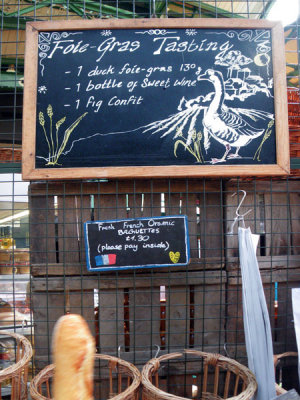 Foie-Gras Tasting
- 1 duck foie-gras 130g
- 1 bottle of Sweet Wine
- 1 Fig Confit
Fresh French Organic
BAGUETTES
£1.30
(please pay inside)